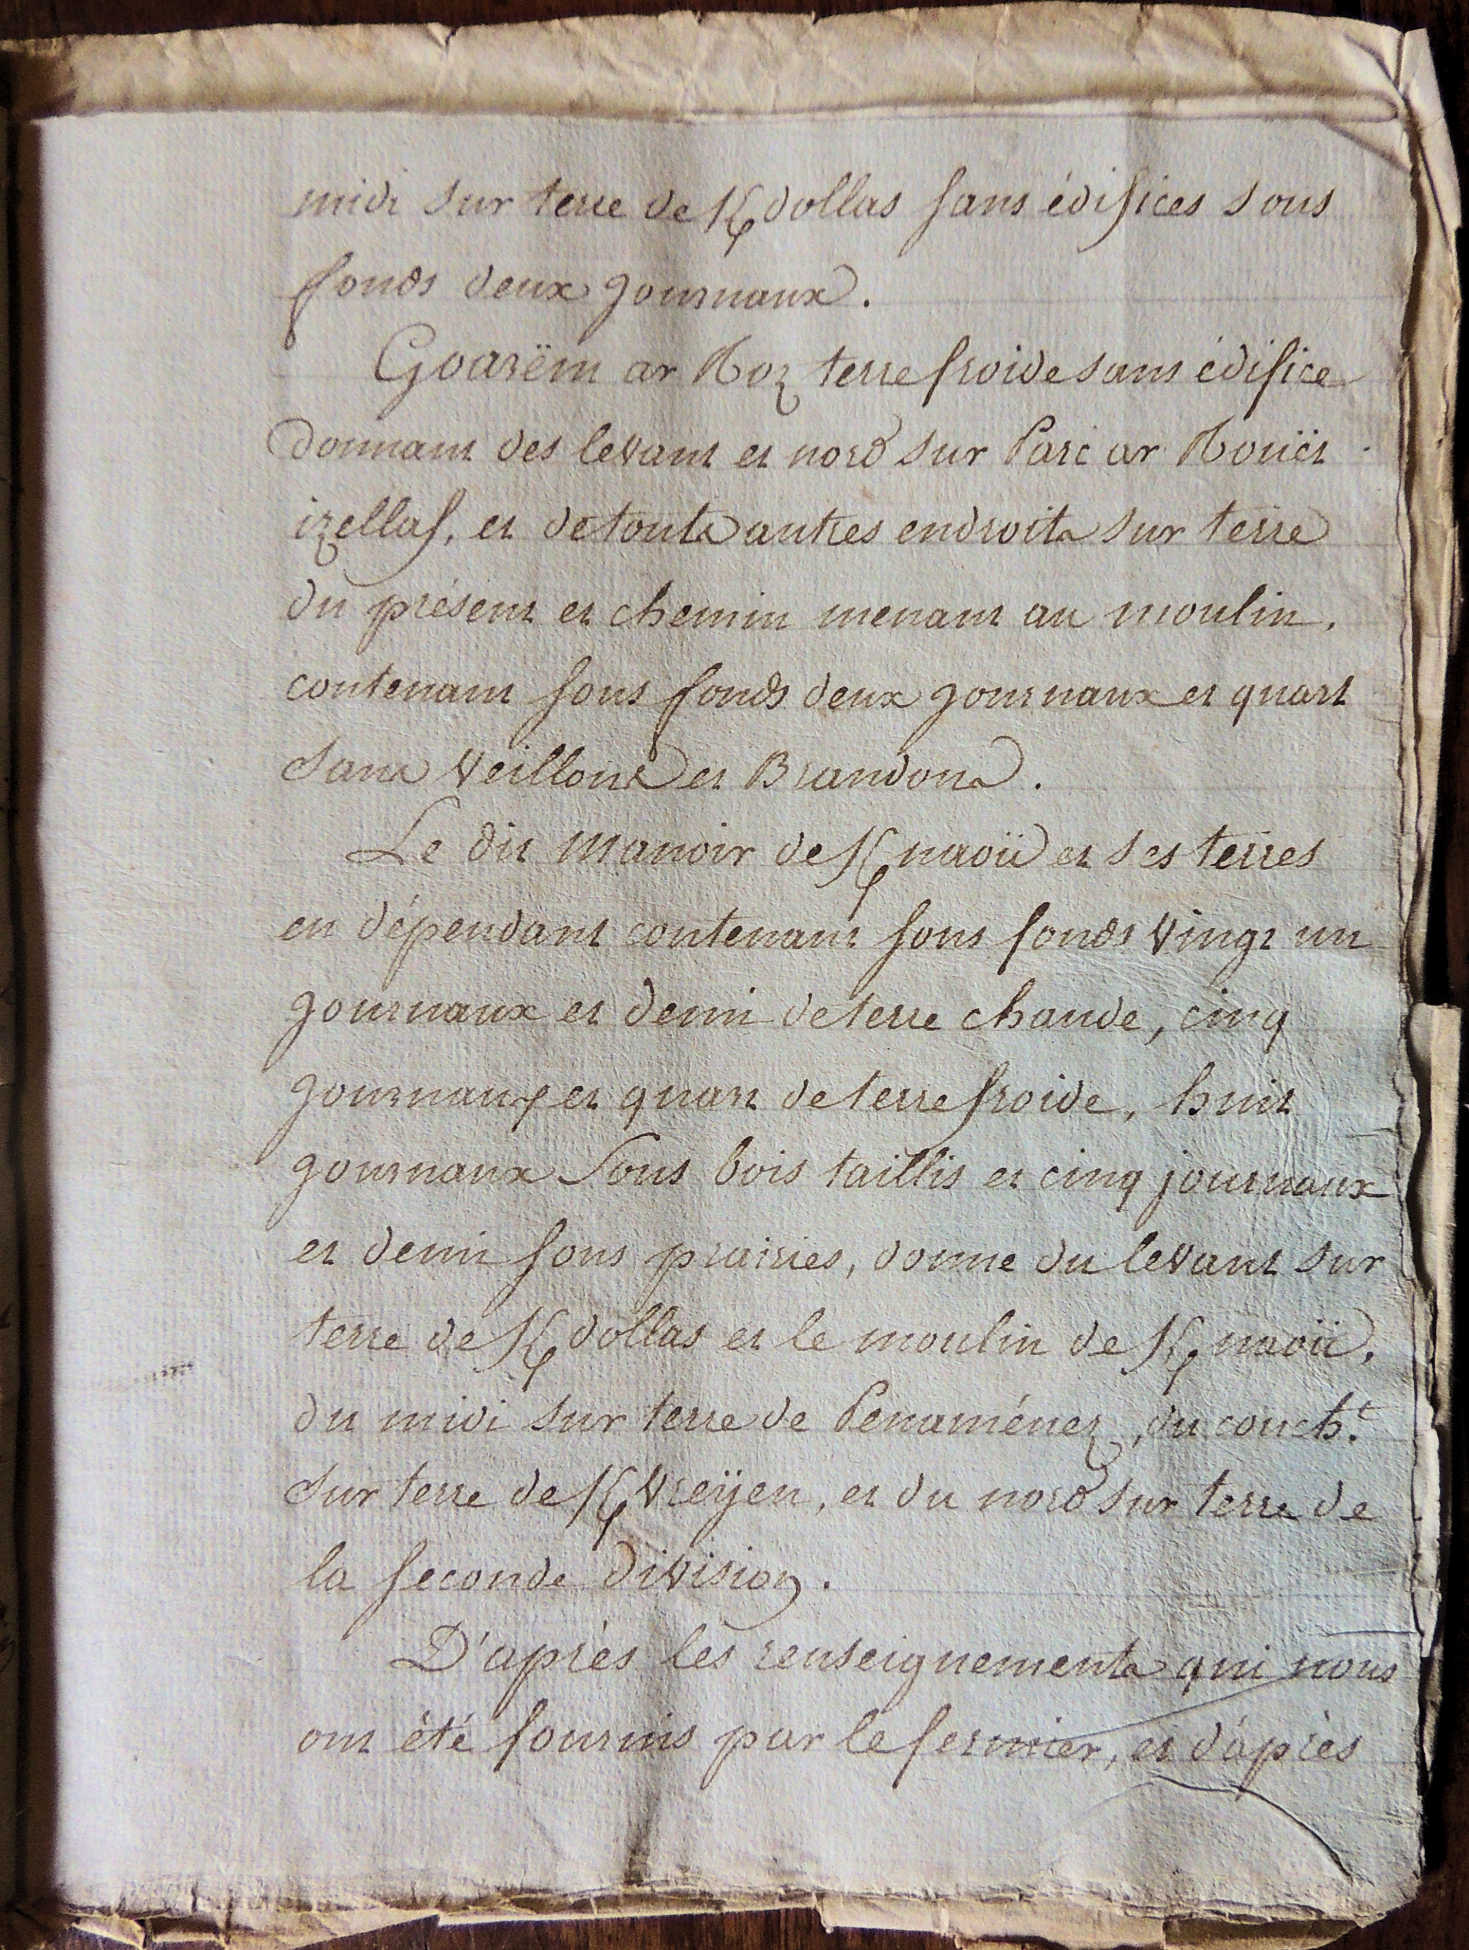 midi sur terre de Ꝃdollas sans édifices sous
fonds deux journaux.
Goarëm ar Roz terre froide sans édifice
donnant des levant et nord sur Parc ar Rouër
izellaf, et de touts autres endroits sur terre
du présent et chemin menant au moulin,
contenant sous fonds deux journaux et quart
sans veillons et Brandons.
Le dit manoir de Ꝃnaoü et ses terres
en dépendant contenant sous fonds vingt un
journaux et demi de terre chaude, cinq
journaux et quart de terre froide, huit
journaux sous bois taillis et cinq journaux
et demi sous prairies, donne du levant sur
terre de Ꝃdollas et le moulin de Ꝃnaoü,
du midi sur terre de Penaménez, du couch.t
sur terre de Ꝃvreÿen, et du nord sur terre de
la seconde division.
D'après les renseignements qui nous
ont été fournis par le fermier, et d'après